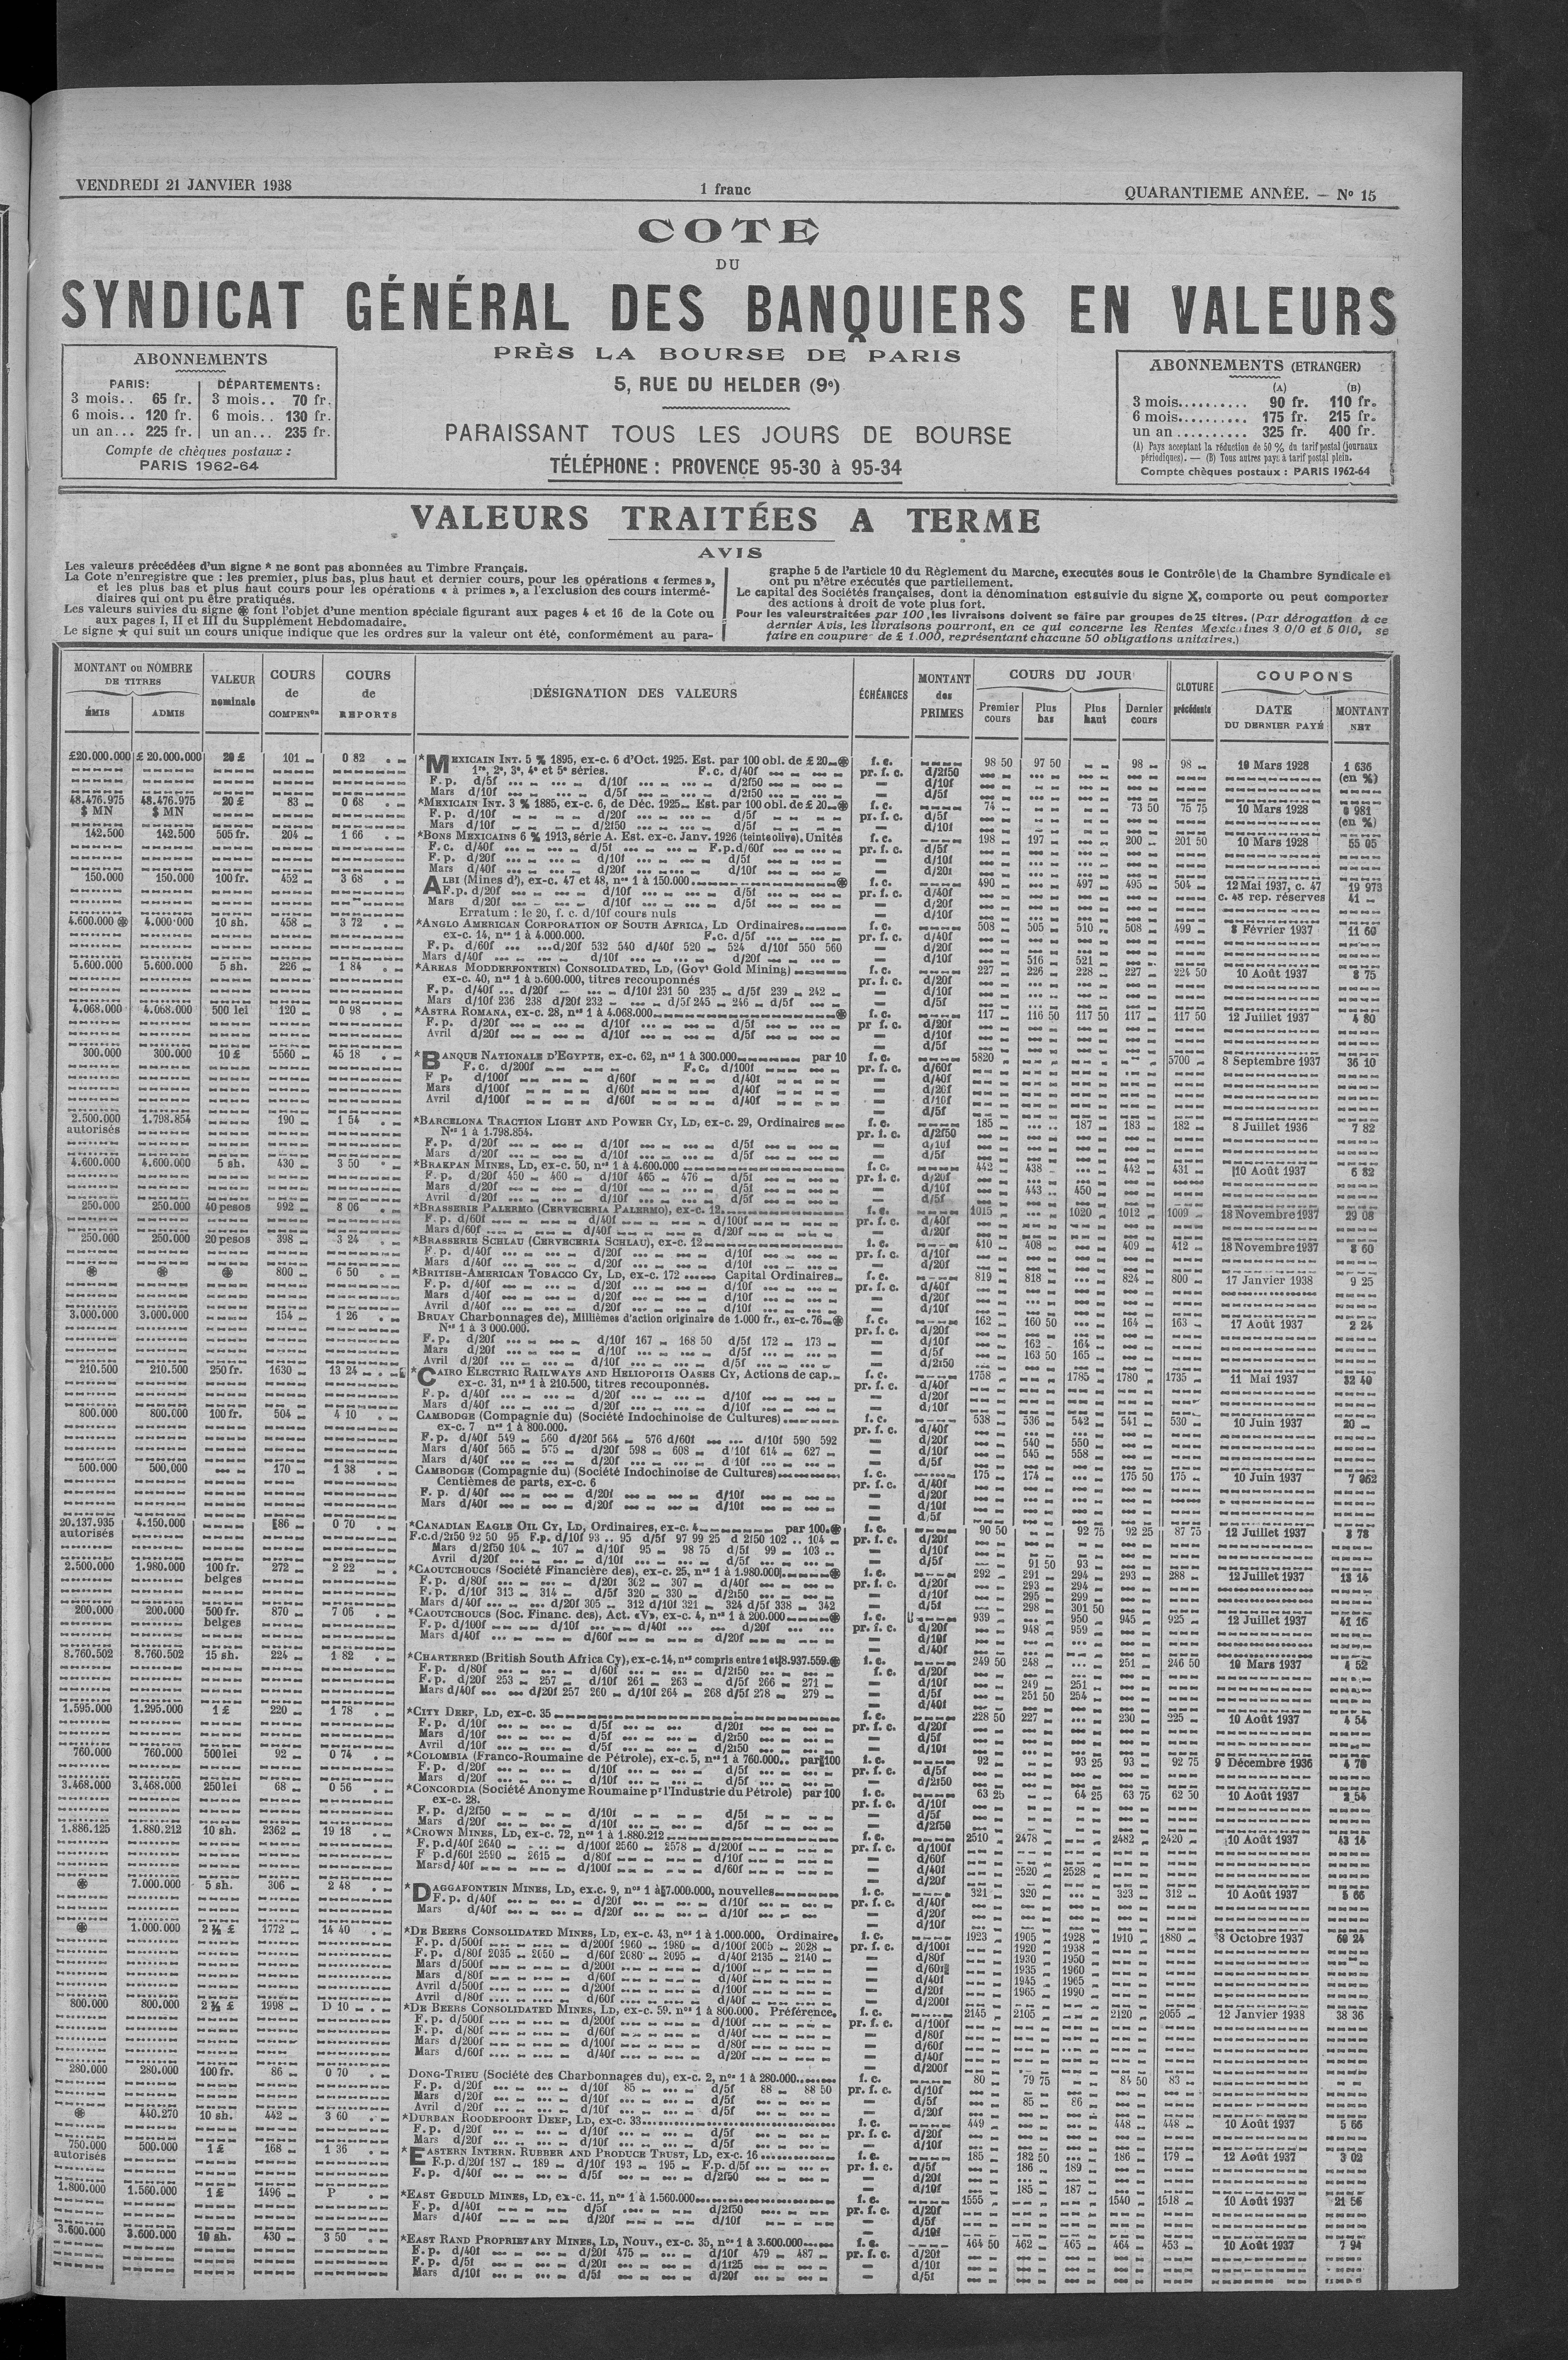 VENDREDI 21 JANVIER 1938
1 franc
QUARANTIEME ANNÉE. — Nº 15
COTE
DU
SYNDICAT GÉNÉRAL DES BANQUIERS EN VALEURS
PRÈS LA BOURSE DE PARIS
5, RUE DU HELDER (9e)
PARAISSANT TOUS LES JOURS DE BOURSE
TÉLÉPHONE : PROVENCE 95-30 à 95-34
ABONNEMENTS
PARIS: DÉPARTEMENTS:
3 mois.. 65 fr. 3 mois.. 70 fr.
6 mois.. 120 fr. 6 mois.. 130 fr.
un an... 225 fr. un an... 235 fr.
Compte de chèques postaux :
PARIS 1962-64
ABONNEMENTS (ETRANGER)
(A) (B)
3 mois.......... 90 fr. 110 fr.
6 mois.......... 175 fr. 215 fr.
un an .......... 325 fr. 400 fr.
(A) Pays acceptant la réduction de 50 % du tarif postal (journaux
périodiques). — (B) Tous autres pays à tarif postal plein.
Compte chèques postaux : PARIS 1962-64
VALEURS TRAITÉES A TERME
AVIS
Les valeurs précédées d'un signe * ne sont pas abonnées au Timbre Français.
La Cote n'enregistre que : les premier, plus bas, plus haut et dernier cours, pour les opérations « fermes »,
et les plus bas et plus haut cours pour les opérations « à primes », a l'exclusion des cours intermé-
diaires qui ont pu être pratiqués.
Les valeurs suivies du signe ⊛ font l'objet d'une mention spéciale figurant aux pages 4 et 16 de la Cote ou
aux pages I, II et III du Supplément Hebdomadaire.
Le signe ★ qui suit un cours unique indique que les ordres sur la valeur ont été, conformément au para-
graphe 5 de l'article 10 du Règlement du Marche, executés sous le Contrôle de la Chambre Syndicale et
ont pu n'être exécutés que partiellement.
Le capital des Sociétés françaises, dont la dénomination est suivie du signe X, comporte ou peut comporter
des actions à droit de vote plus fort.
Pour les valeurs traitées par 100, les livraisons doivent se faire par groupes de 25 titres. (Par dérogation à ce
dernier Avis, les livraisons pourront, en ce qui concerne les Rentes Mexicaines 3 0/0 et 5 0/0, se
faire en coupure de £ 1.000, représentant chacune 50 obligations unitaires.)
MONTANT ou NOMBRE DE TITRES
ÉMIS ADMIS
VALEUR nominale
COURS de COMPENon
COURS de REPORTS
DÉSIGNATION DES VALEURS
ÉCHÉANCES
MONTANT des PRIMES
COURS DU JOUR
Premier cours Plus bas Plus haut Dernier cours
CLOTURE précédente
COUPONS
DATE DU DERNIER PAYÉ
MONTANT NET
£20.000.000 £ 20.000.000 20 £ 101 0 82 *MEXICAIN INT. 5 % 1895, ex-c. 6 d'Oct. 1925. Est. par 100 obl. de £ 20 ⊛ f. c. 98 50 97 50 98 98 10 Mars 1928 1 636
1re, 2e, 3e, 4e et 5e séries. F.c. d/40f pr. f. c. d/2f50 (en %)
48.476.975 48.476.975 20 £ 83 0 68 *MEXICAIN INT. 3 % 1885, ex-c. 6, de Déc. 1925 Est. par 100 obl. de £ 20 ⊛ f. c. 74 73 50 75 75 10 Mars 1928 0 981
$ MN $ MN (en %)
142.500 142.500 505 fr. 204 1 66 *BONS MEXICAINS 6 % 1913, série A. Est. ex-c. Janv. 1926 (teinte olive). Unités f. c. 198 197 200 201 50 10 Mars 1928 55 05
150.000 150.000 100 fr. 452 3 68 ALBI (Mines d'), ex-c. 47 et 48, nos 1 à 150.000 ⊛ f. c. 490 497 495 504 12 Mai 1937, c. 47 19 973
c. 48 rep. réserves 41
Erratum : le 20, f. c. d/10f cours nuls
4.600.000 ⊛ 4.000.000 10 sh. 458 3 72 *ANGLO AMERICAN CORPORATION OF SOUTH AFRICA, LD Ordinaires f. c. 508 505 510 508 499 8 Février 1937 11 60
ex-c. 14, nos 1 à 4.000.000. F.c. d/5f
F.p. d/60f d/20f 532 540 d/40f 520 524 d/10f 550 560
516 521
5.600.000 5.600.000 5 sh. 226 1 84 *AREAS MODDERFONTEIN) CONSOLIDATED, LD, (Govt Gold Mining) f. c. 227 226 228 227 224 50 10 Août 1937 8 75
ex-c. 40, nos 1 à 5.600.000, titres recouponnés
F.p. d/40f d/20f d/10f 231 50 235 d/5f 239 242
Mars d/10f 236 238 d/20f 232 d/5f 245 246 d/5f
4.068.000 4.068.000 500 lei 120 0 98 *ASTRA ROMANA, ex-c. 28, nos 1 à 4.068.000 ⊛ f. c. 117 116 50 117 50 117 117 50 12 Juillet 1937 4 80
300.000 300.000 10 £ 5560 45 18 *BANQUE NATIONALE D'EGYPTE, ex-c. 62, nos 1 à 300.000 par 10 f. c. 5820 5700 8 Septembre 1937 36 10
2.500.000 1.798.854 190 1 54 *BARCELONA TRACTION LIGHT AND POWER CY, LD, ex-c. 29, Ordinaires f. c. 185 187 183 182 8 Juillet 1936 7 82
autorisés Nos 1 à 1.798.854.
4.600.000 4.600.000 5 sh. 430 3 50 *BRAKPAN MINES, LD, ex-c. 50, nos 1 à 4.600.000 f. c. 442 438 442 431 10 Août 1937 6 82
F.p. d/20f 450 460 d/10f 465 476 d/5f
443 450
250.000 250.000 40 pesos 992 8 06 *BRASSERIE PALERMO (CERVECERIA PALERMO), ex-c. 12 f. c. 1015 1020 1012 1009 18 Novembre 1937 29 08
250.000 250.000 20 pesos 398 3 24 *BRASSERIE SCHLAU (CERVECERIA SCHLAU), ex-c. 12 f. c. 410 408 409 412 18 Novembre 1937 8 60
⊛ ⊛ ⊛ 800 6 50 *BRITISH-AMERICAN TOBACCO CY, LD, ex-c. 172 Capital Ordinaires f. c. 819 818 824 800 17 Janvier 1938 9 25
3.000.000 3.000.000 154 1 26 BRUAY Charbonnages de), Millièmes d'action originaire de 1.000 fr., ex-c. 76 ⊛ f. c. 162 160 50 164 163 17 Août 1937 2 24
Nos 1 à 3 000.000.
F.p. d/20f d/10f 167 168 50 d/5f 172 173
162 164
163 50 165
210.500 210.500 250 fr. 1630 13 24 *CAIRO ELECTRIC RAILWAYS AND HELIOPOLIS OASES CY, Actions de cap. f. c. 1758 1785 1780 1735 11 Mai 1937 32 40
ex-c. 31, nos 1 à 210.500, titres recouponnés.
800.000 800.000 100 fr. 504 4 10 CAMBODGE (Compagnie du) (Société Indochinoise de Cultures) f. c. 538 536 542 541 530 10 Juin 1937 20
ex-c. 7 nos 1 à 800.000.
F.p. d/40f 549 560 d/20f 564 576 d/60f d/10f 590 592
Mars d/40f 565 575 d/20f 598 608 d/10f 614 627
540 550
545 558
500.000 500.000 170 1 38 CAMBODGE (Compagnie du) (Société Indochinoise de Cultures) f. c. 175 174 175 50 175 10 Juin 1937 7 062
Centièmes de parts, ex-c. 6
20.137.935 4.150.000 86 0 70 *CANADIAN EAGLE OIL CY, LD, Ordinaires, ex-c. 4 par 100 ⊛ f. c. 90 50 92 75 92 25 87 75 12 Juillet 1937 3 78
autorisés F.c.d/2f50 92 50 95 F.p. d/10f 93 95 d/5f 97 99 25 d 2f50 102 104
Mars d/2f50 104 107 d/10f 95 98 75 d/5f 99 103
91 50 93
2.500.000 1.980.000 100 fr. belges 272 2 22 *CAOUTCHOUCS (Société Financière des), ex-c. 25, nos 1 à 1.980.000 ⊛ f. c. 292 291 294 293 288 12 Juillet 1937 13 14
F.p. d/80f d/20f 302 307 d/40f
F.p. d/10f 313 314 d/5f 320 330 d/2f50
Mars d/40f d/20f 305 312 d/10f 321 324 d/5f 338 342
293 294
295 299
298 301 50
200.000 200.000 500 fr. belges 870 7 06 *CAOUTCHOUCS (Soc. Financ. des), Act. «V», ex-c. 4, nos 1 à 200.000 ⊛ f. c. 939 950 945 925 12 Juillet 1937 41 16
948 959
8.760.502 8.760.502 15 sh. 224 1 82 *CHARTERED (British South Africa Cy), ex-c. 14, nos compris entre 1 et 8.937.559 ⊛ f. c. 249 50 248 251 246 50 10 Mars 1937 4 52
F.p. d/20f 253 257 d/10f 261 263 d/5f 266 271
Mars d/40f d/20f 257 260 d/10f 264 268 d/5f 278 279
249 251
251 50 254
1.595.000 1.295.000 1 £ 220 1 78 *CITY DEEP, LD, ex-c. 35 f. c. 228 50 227 230 225 10 Août 1937 4 54
760.000 760.000 500 lei 92 0 74 *COLOMBIA (Franco-Roumaine de Pétrole), ex-c. 5, nos 1 à 760.000.. par 100 f. c. 92 93 25 93 92 75 9 Décembre 1936 4 70
3.468.000 3.468.000 250 lei 68 0 56 *CONCORDIA (Société Anonyme Roumaine pr l'Industrie du Pétrole) par 100 f. c. 63 25 64 25 63 75 62 50 10 Août 1937 2 54
ex-c. 28.
1.886.125 1.880.212 10 sh. 2362 19 18 *CROWN MINES, LD, ex-c. 72, nos 1 à 1.880.212 f. c. 2510 2478 2482 2420 10 Août 1937 43 14
F. p.d/40f 2640 d/100f 2560 2578 d/200f
F p.d/60f 2590 2615 d/80f d/10f
2520 2528
⊛ 7.000.000 5 sh. 306 2 48 *DAGGAFONTEIN MINES, LD, ex.c. 9, nos 1 à 7.000.000, nouvelles f. c. 321 320 323 312 10 Août 1937 5 66
⊛ 1.000.000 2 ½ £ 1772 14 40 *DE BEERS CONSOLIDATED MINES, LD, ex-c. 43, nos 1 à 1.000.000. Ordinaire. f. c. 1923 1905 1928 1910 1880 8 Octobre 1937 60 24
F. p. d/500f d/200f 1960 1980 d/100f 2005 2028
F. p. d/80f 2035 2050 d/60f 2080 2095 d/40f 2135 2140
1920 1938
1930 1950
1935 1960
1945 1965
1965 1990
800.000 800.000 2 ½ £ 1998 D 10 *DE BEERS CONSOLIDATED MINES, LD, ex-c. 59. nos 1 à 800.000. Préférence. f. c. 2145 2105 2120 2055 12 Janvier 1938 38 36
280.000 280.000 100 fr. 86 0 70 DONG-TRIEU (Société des Charbonnages du), ex-c. 2, nos 1 à 280.000 f. c. 80 79 75 84 50 83
F.p. d/20f d/10f 85 d/5f 88 88 50
85 86
⊛ 440.270 10 sh. 442 3 60 *DURBAN ROODEPOORT DEEP, LD, ex-c. 33 f. c. 449 448 448 10 Août 1937 5 66
750.000 500.000 1 £ 168 1 36 *EASTERN INTERN. RUBBER AND PRODUCE TRUST, LD, ex-c. 16 f. c. 185 182 50 186 179 12 Août 1937 3 02
autorisés F.p. d/20f 187 189 d/10f 193 195 F.p. d/5f
186 189
185 187
1.800.000 1.560.000 1 £ 1496 P *EAST GEDULD MINES, LD, ex-c. 11, nos 1 à 1.560.000 f. c. 1555 1540 1518 10 Août 1937 21 56
3.600.000 3.600.000 10 sh. 430 3 50 *EAST RAND PROPRIETARY MINES, LD, Nouv., ex-c. 35, nos 1 à 3.600.000 f. c. 464 50 462 465 464 453 10 Août 1937 7 94
F. p. d/40f d/20f 475 d/10f 479 487
F. p. d/5f d/20f d/1f25
Mars d/10f d/5f d/20f